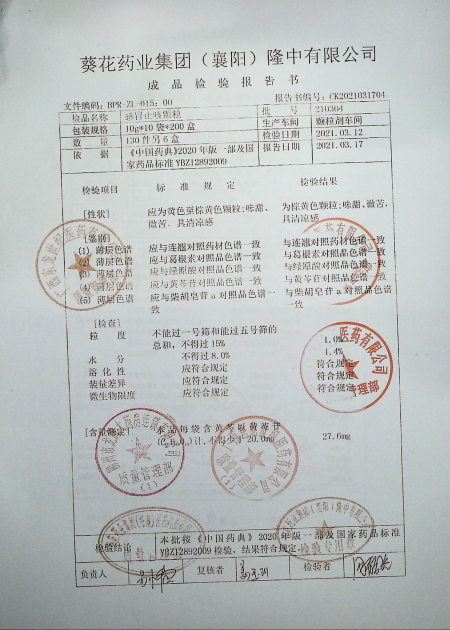 葵花药业集团（襄阳）隆中有限公司
成品检验报告书
文件编码：BPR-ZL-015：00 报告书编号：CK2021031704
检品名称 感冒止咳颗粒 批 号 210304
包装规格 10g*10袋*200盒 生产车间 颗粒剂车间
数 量 130件另6盒 检验日期 2021.03.12
依 据 《中国药典》2020年版一部及国家药品标准YBZ12892009 报告日期 2021.03.17
检验项目 标准规定 检验结果
[性状] 应为黄色至棕黄色颗粒;味甜、 为棕黄色颗粒;味甜、微苦、
微苦、具清凉感 具清凉感
[鉴别]
(1) 薄层色谱 应与连翘对照药材色谱一致 与连翘对照药材色谱一致
(2) 薄层色谱 应与葛根素对照品色谱一致 与葛根素对照品色谱一致
(3) 薄层色谱 应与绿原酸对照品色谱一致 与绿原酸对照品色谱一致
(4) 薄层色谱 应与黄芩苷对照品色谱一致 与黄芩苷对照品色谱一致
(5) 薄层色谱 应与柴胡皂苷a对照品色谱一致 与柴胡皂苷a对照品色谱一致
[检查]
粒 度 不能过一号筛和能过五号筛的
总和，不得过15% 1.0%
水 分 不得过8.0% 1.4%
溶化性 应符合规定 符合规定
装量差异 应符合规定 符合规定
微生物限度 应符合规定 符合规定
[含量测定] 本品每袋含黄芩以黄芩苷
计，不得少于20.0mg 27.6mg
检验结论 本批按《中国药典》2020年版一部及国家药品标准
YBZ12892009检验，结果符合规定
负责人 复核者 检验者
医药有限公司
管理部
质量管理部
(1)
检验专用章